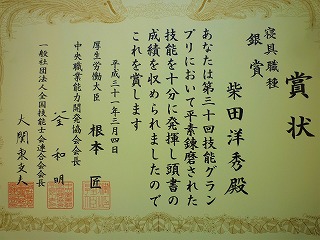 賞状
寝具職種
銀賞
柴田洋秀殿
あなたは第三十回技能グラン
プリにおいて平素錬磨された
技能を十分に発揮し頭書の
成績を収められましたので
これを賞します
平成三十一年三月四日
厚生労働大臣 根本匠
中央職業能力開発協会会長
和明
一般社団法人全国技能士会連合会会長
大関東支夫